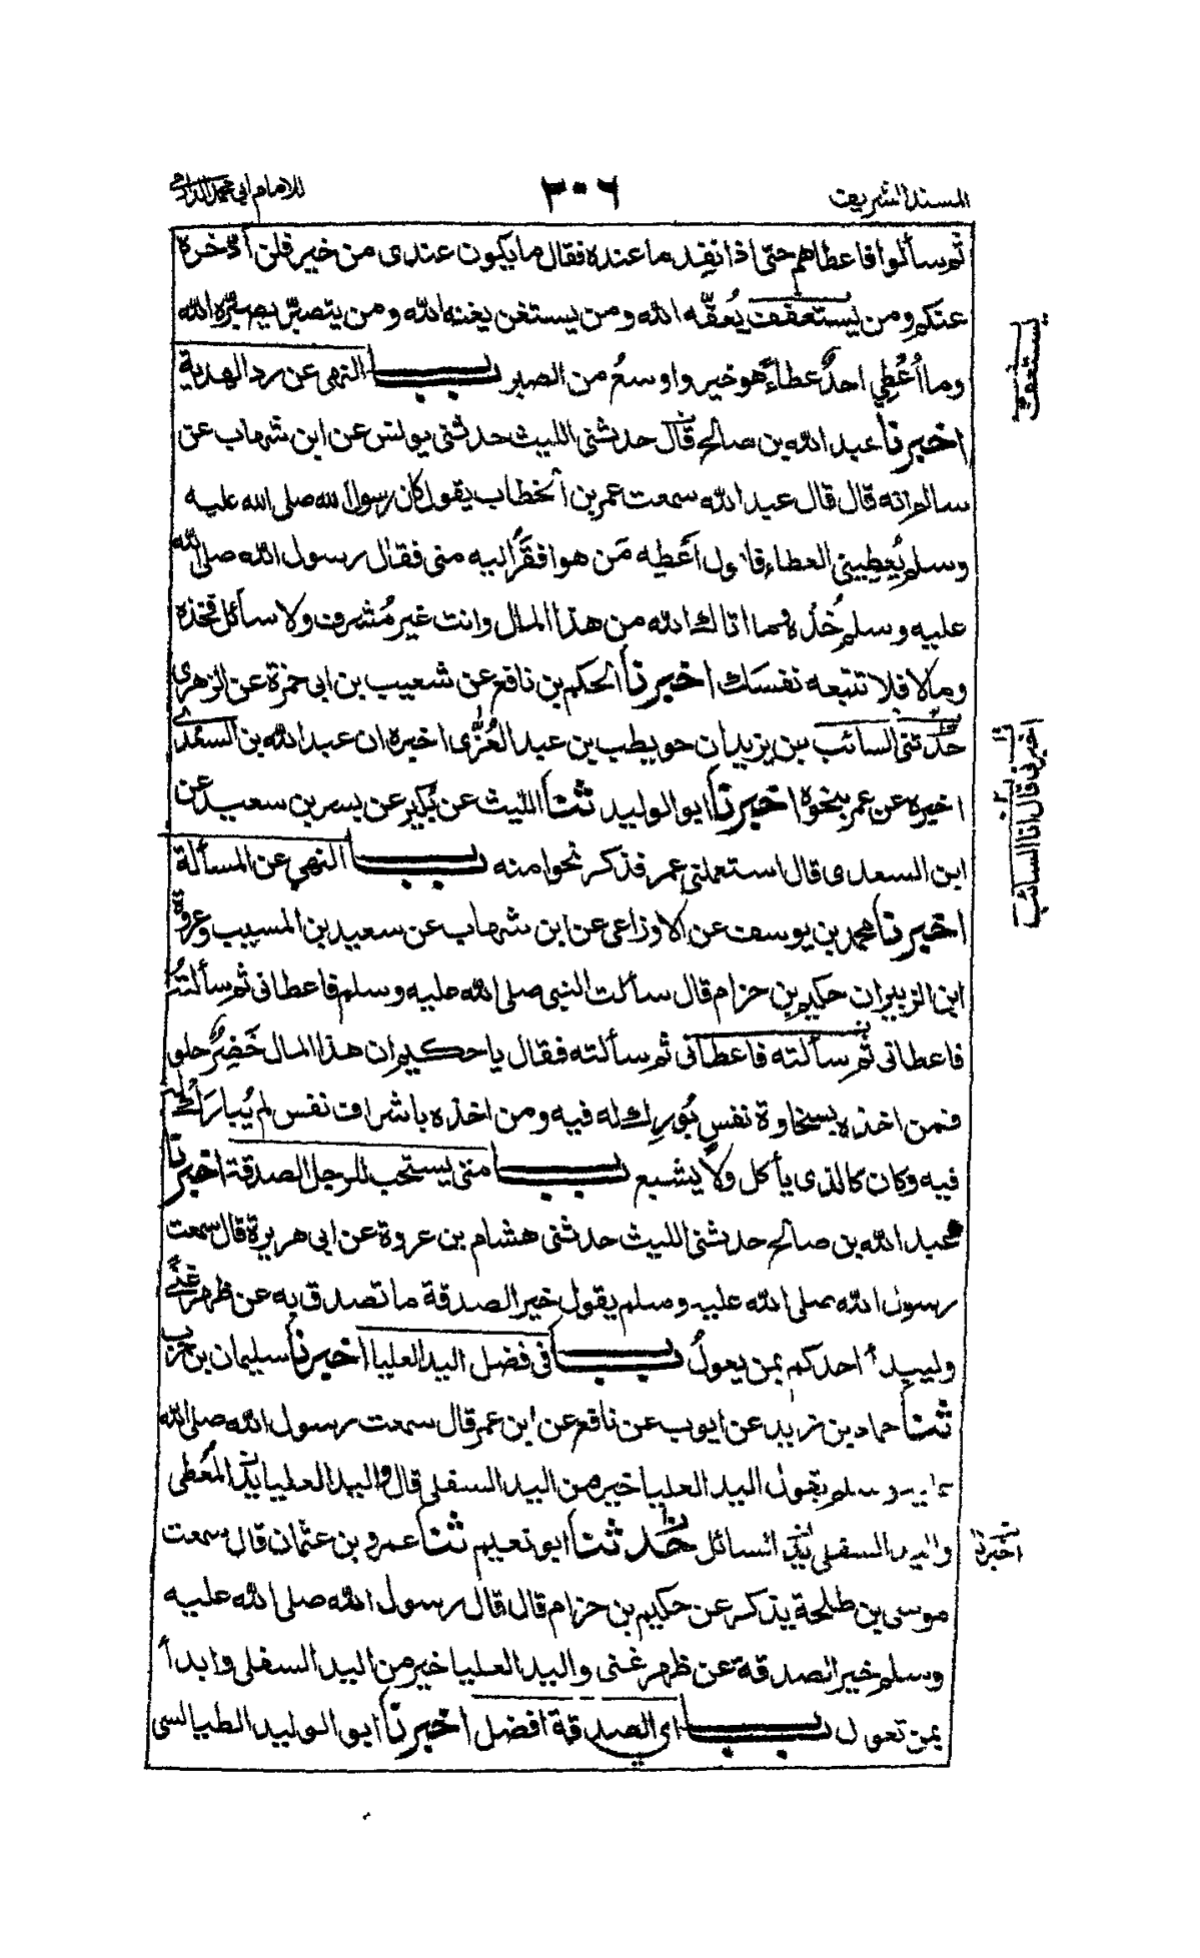 المسند الشريف
٢٠٦
للامام ابي محمد الدارمي
ثم سألوا فاعطاهم حتى اذا نفد ما عنده فقال ما يكون عندى من خير فلن ادّخره
عنكم ومن يستعفف يُعفّه الله ومن يستغن يغنه الله ومن يتصبّر يصبّره الله
وما أُعْطِي احدٌ عطاءً هو خير واوسعُ من الصبر باب النهى عن رد الهدية
اخبرنا عبد الله بن صالح قال حدثنى الليث حدثنى يونس عن ابن شهاب عن
سالم انه قال قال عبد الله سمعت عمر بن الخطاب يقول كان رسول الله صلى الله عليه
وسلم يُعطِيني العطاء فاقول اَعْطِه مَن هو افقرُ اليه منى فقال رسول الله صلى الله
عليه وسلم خُذْه وما اتاك الله من هذا المال وانت غير مُشرف ولا سائل فخذه
وما لا فلا تتبعه نفسَك اخبرنا الحكم بن نافع عن شعيب بن ابى حمزة عن الزهرى
حدّثنى السائب بن يزيد ان حويطب بن عبد العُزّى اخبره ان عبد الله بن السعدى
اخبره عن عمر بنحوه اخبرنا ابو الوليد ثنا الليث عن بُكير عن بسر بن سعيد عن
ابن السعدى قال استعملنى عمر فذكر نحوا منه باب النهى عن المسألة
اخبرنا محمد بن يوسف عن الاوزاعى عن ابن شهاب عن سعيد بن المسيب وعروة
ابن الزبير ان حكيم بن حزام قال سألت النبى صلى الله عليه وسلم فاعطانى ثم سألتُه
فاعطانى ثم سألته فاعطانى ثم سألته فقال يا حكيم ان هذا المال خَضِرٌ حلو
فمن اخذه بسخاوة نفسٍ بُورِك له فيه ومن اخذه باشراف نفس لم يُبارَك له
فيه وكان كالذى يأكل ولا يشبع باب متى يستحب للرجل الصدقة اخبرنا
عبد الله بن صالح حدثنى الليث حدثنى هشام بن عروة عن ابى هريرة قال سمعت
رسول الله صلى الله عليه وسلم يقول خير الصدقة ما تصدق به عن ظهر غنًى
وليبدأ احدكم بمن يعولُ باب فى فضل اليد العليا اخبرنا سليمان بن حرب
ثنا حماد بن زيد عن ايوب عن نافع عن ابن عمر قال سمعت رسول الله صلى الله
عليه وسلم يقول اليد العليا خير من اليد السفلى قال واليد العليا يد المُعطى
واليد السفلى يد السائل حدّثنا ابو نعيم ثنا عمرو بن عثمان قال سمعت
موسى بن طلحة يذكر عن حكيم بن حزام قال قال رسول الله صلى الله عليه
وسلم خير الصدقة عن ظهر غنى واليد العليا خير من اليد السفلى وابدأ
بمن تعول باب اى الصدقة افضل اخبرنا ابو الوليد الطيالسى
يستعف
اخبرنى قال انا السائب
اخبرنا